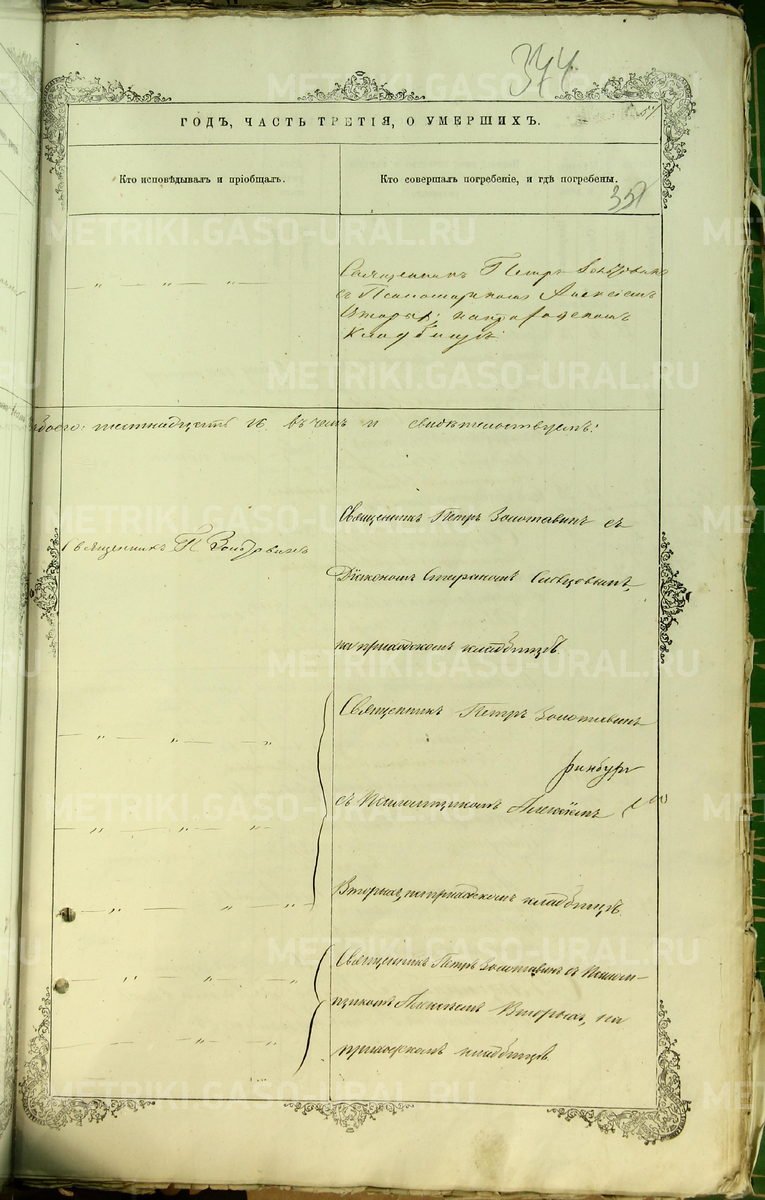 344
57
ГОДЪ, ЧАСТЬ ТРЕТІЯ, О УМЕРШИХЪ.
Кто исповѣдывалъ и пріобщалъ.
Кто совершалъ погребеніе, и гдѣ погребены.
357
Священникъ Петръ
съ Псаломщикомъ Алексѣемъ
Вторых; на приходскомъ
кладбищѣ
обоего: шестнадцать 16. въ чемъ и свидѣтельствуемъ:
Священникъ Петръ Золотавинъ съ
Священникъ П
Діакономъ Стефаномъ Словцовымъ,
на приходскомъ кладбищѣ
Священникъ Петръ Золотавинъ
съ Псаломщикомъ Алексѣемъ
Вторыхъ, на приходскомъ кладбищѣ.
Священникъ Петръ Золотавинъ съ Псалом-
щикомъ Алексѣемъ Вторыхъ, на
приходскомъ кладбищѣ
METRIKI.GASO-URAL.RU